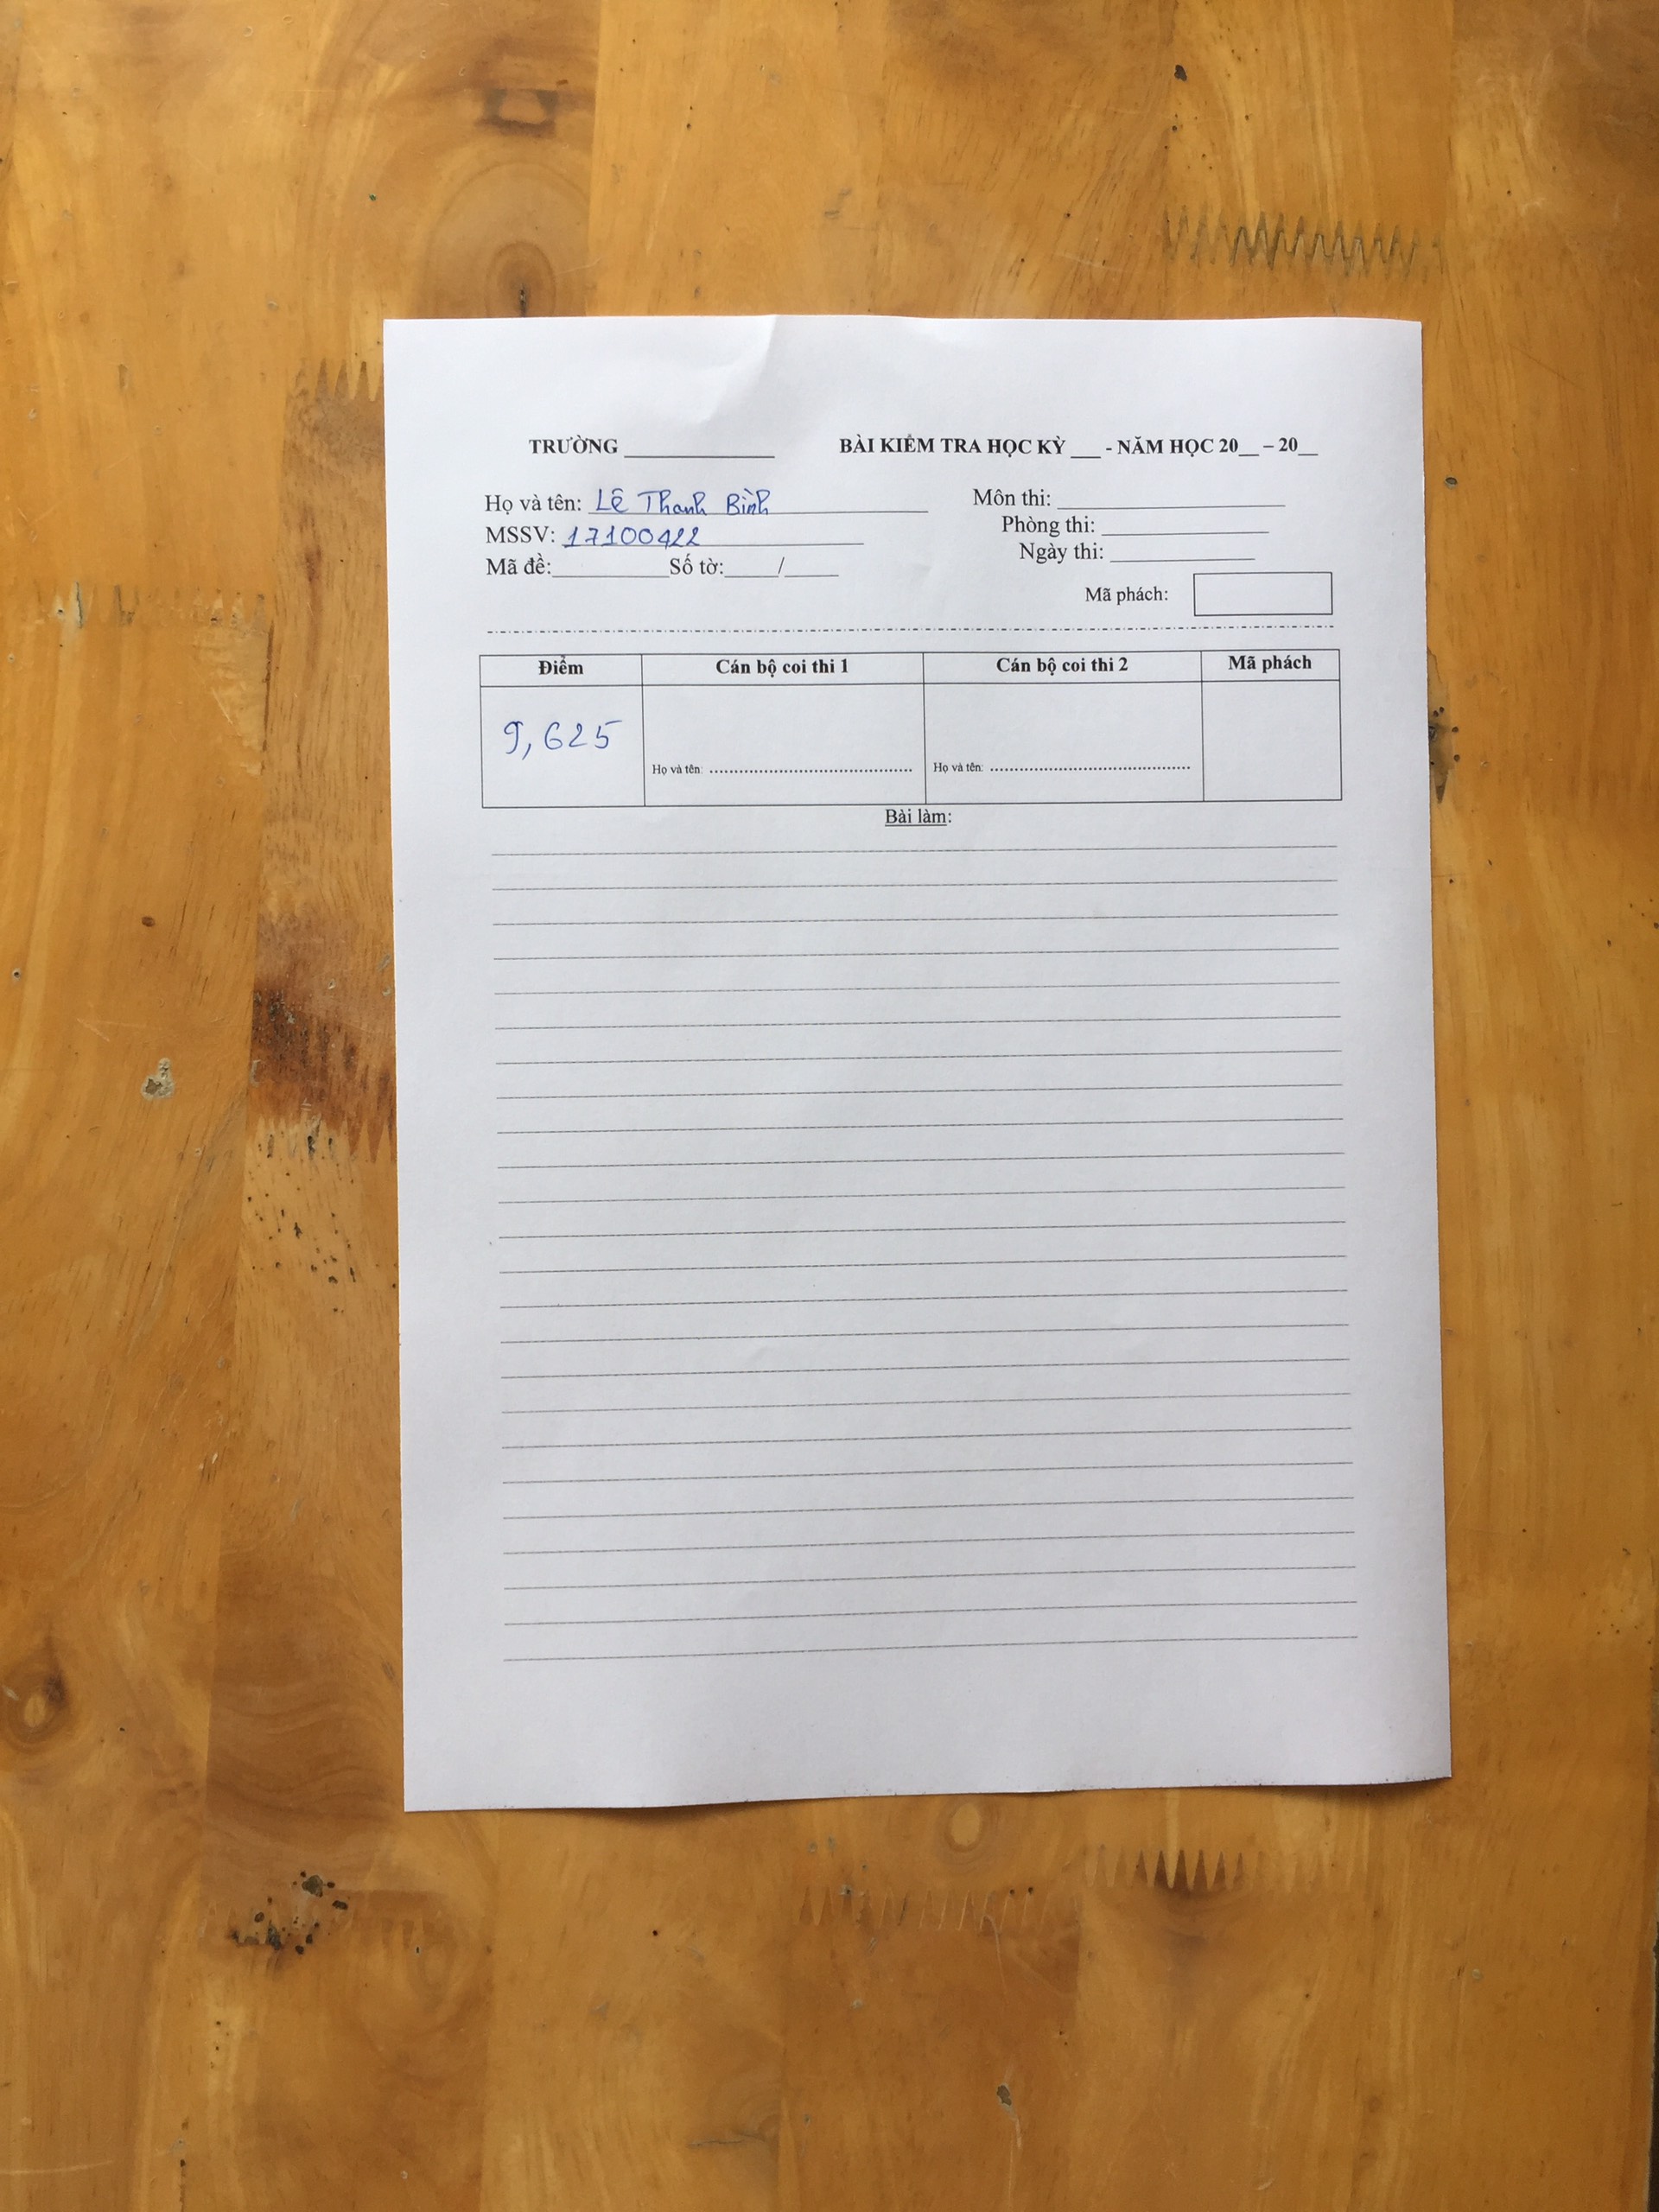 TRƯỜNG ______________ BÀI KIỂM TRA HỌC KỲ ___ - NĂM HỌC 20__ – 20__
Họ và tên: Lê Thanh Bình
Môn thi: ______________
MSSV: 17100422
Phòng thi: ______________
Mã đề:___________Số tờ:_____/_____
Ngày thi: ______________
Mã phách:
Điểm Cán bộ coi thi 1 Cán bộ coi thi 2 Mã phách
9,625
Họ và tên: ........................................ Họ và tên: ........................................
Bài làm: